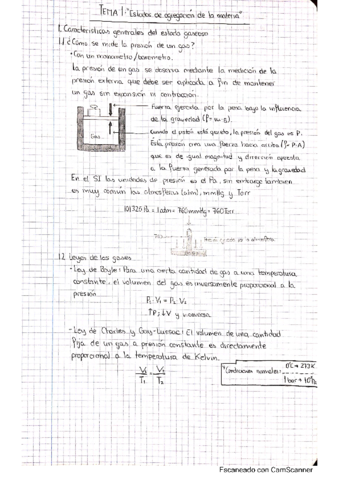 TEMA 1: "Estados de agregación de la materia"
1. Características generales del estado gaseoso
1.1 ¿Cómo se mide la presión de un gas?
- Con un manómetro/barómetro.
La presión de un gas se observa mediante la medición de la
presión externa que debe ser aplicada a fin de mantener
un gas sin expansión ni contracción.
Fuerza ejercida por la pesa bajo la influencia
de la gravedad (F=m·g).
Gas
Cuando el pistón está quieto, la presión del gas es P.
Esta presión crea una fuerza hacia arriba (F=P·A)
que es de igual magnitud y dirección opuesta
a la fuerza generada por la pesa y la gravedad
En el SI las unidades de presión es el Pa, sin embargo también
es muy común las atmósferas (atm), mmHg y Torr
101325 Pa = 1 atm = 760 mmHg = 760 Torr
1.2 Leyes de los gases
- Ley de Boyle: Para una cierta cantidad de gas a una temperatura
constante, el volumen del gas es inversamente proporcional a la
presión.
P₁·V₁ = P₂·V₂
↑P; ↓V y viceversa
- Ley de Charles y Gay-Lussac: El volumen de una cantidad
fija de un gas a presión constante es directamente
proporcional a la temperatura de Kelvin.
V₁/T₁ = V₂/T₂
*Condiciones normales: 0°C → 273K
1 bar = 10⁵ Pa
Escaneado con CamScanner